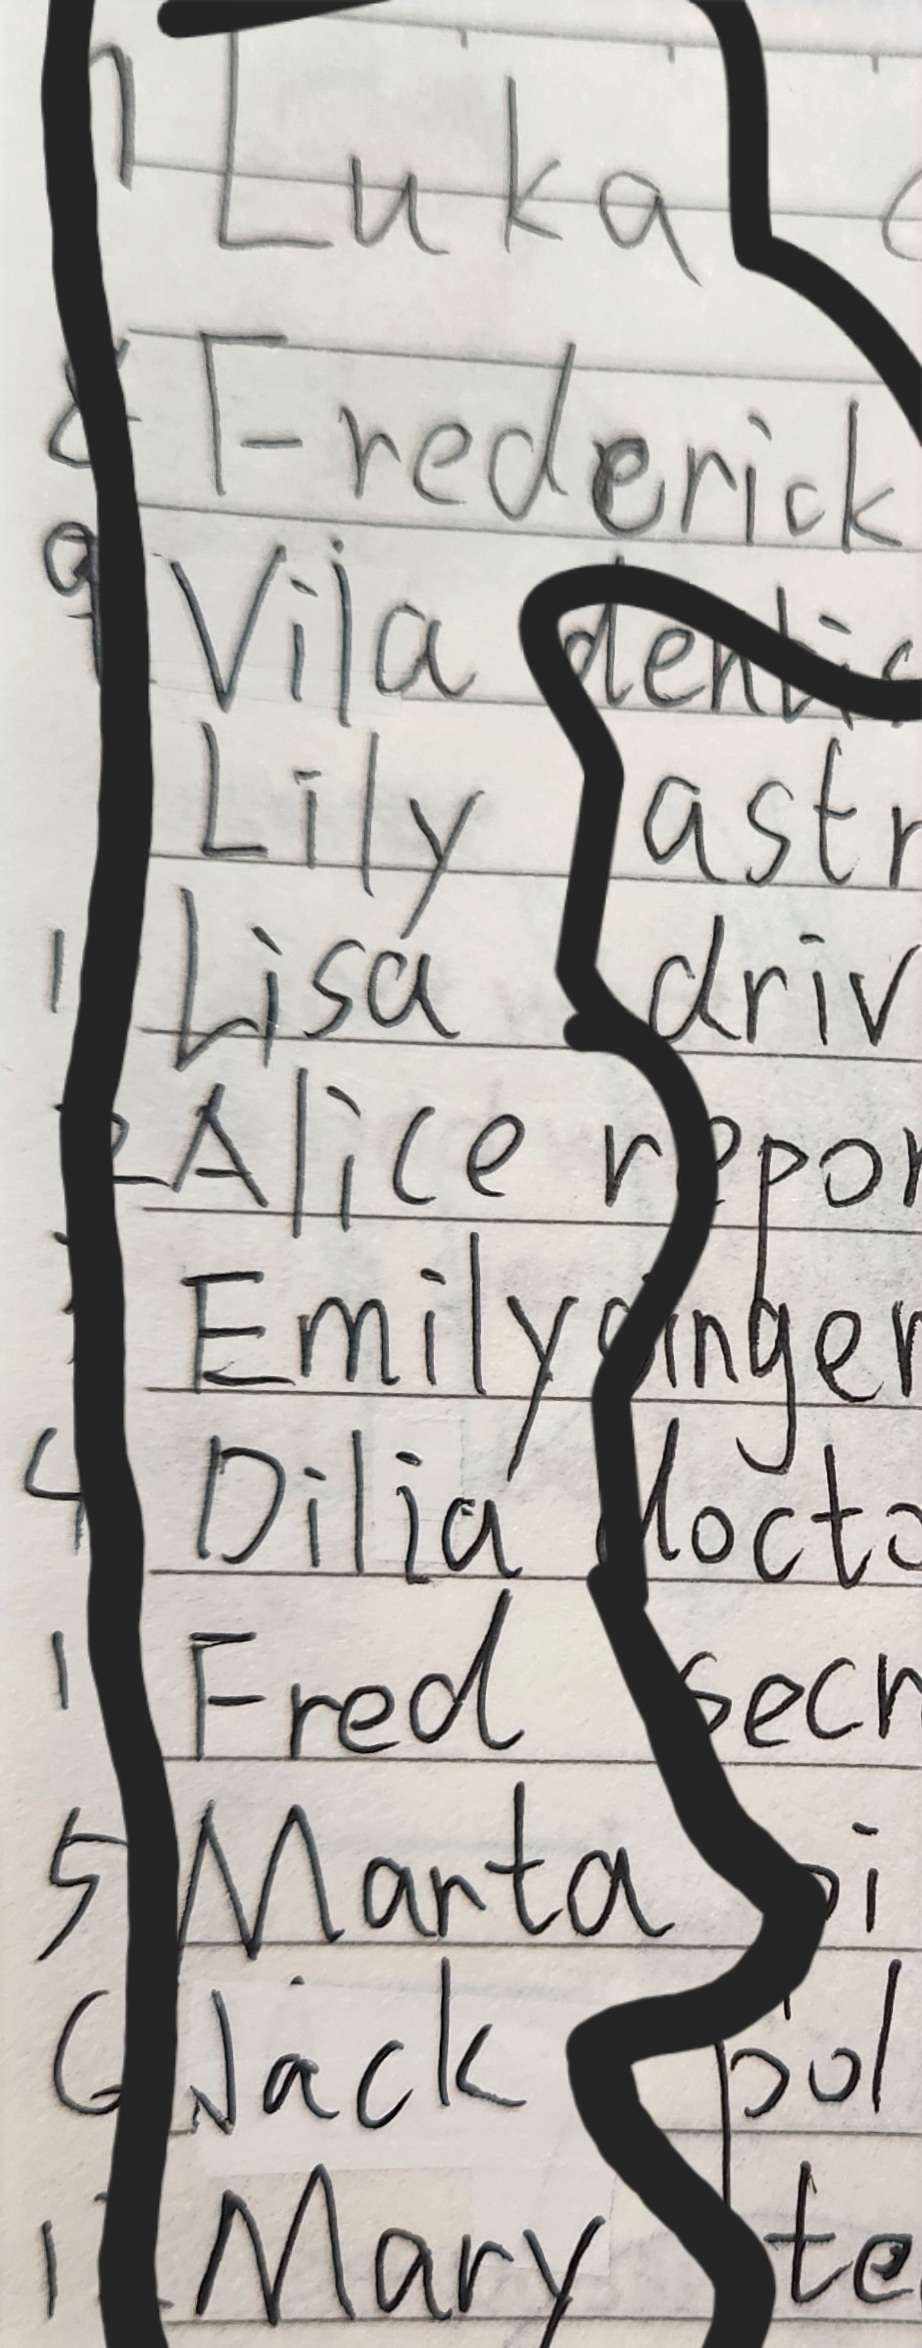 7 Luka
8 Frederick
9 Vila
Lily astr
Lisa driv
Alice repor
Emily singer
Dilia docto
Fred secr
5 Marta
6 Jack pol
Mary te